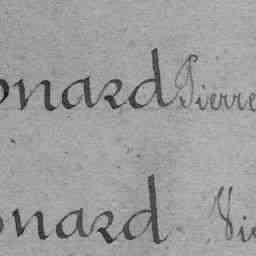 onard Pierre
onard Vi